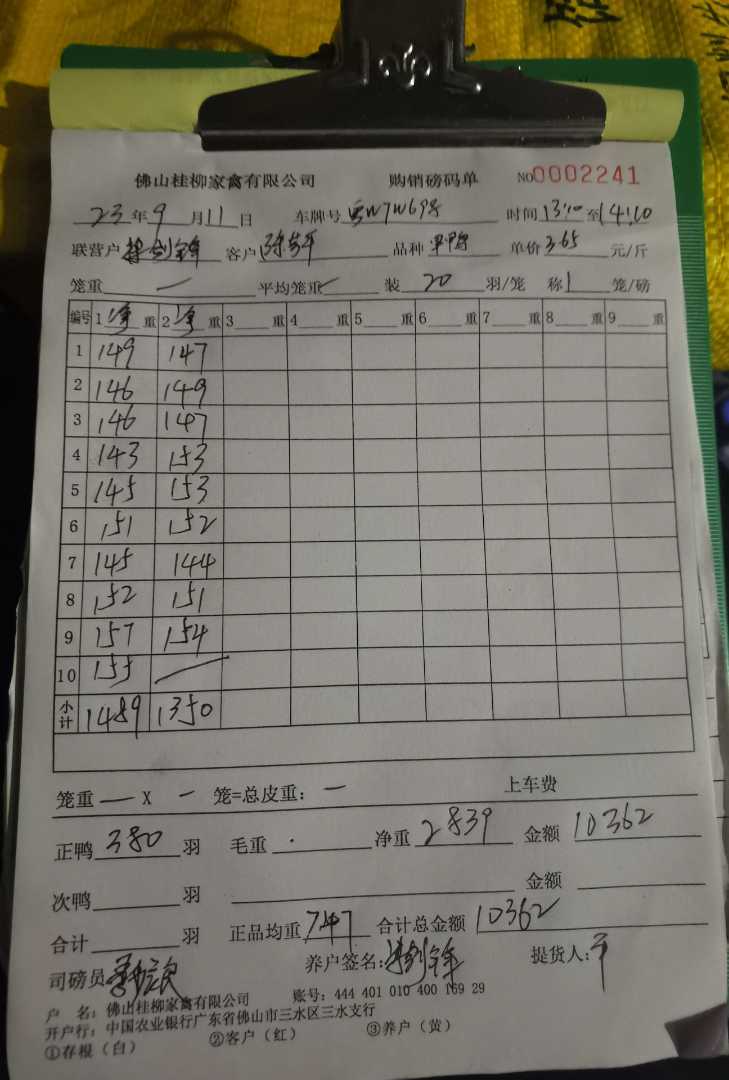 佛山桂柳家禽有限公司 购销磅码单 NO0002241
23年9月11日 车牌号 时间13:10至14:10
联营户 客户 品种 单价3.65元/斤
笼重一 平均笼重 装20羽/笼 称1笼/磅
编号 1净重 2净重 3重 4重 5重 6重 7重 8重 9重
1 149 147
2 146 149
3 146 147
4 143 153
5 145 153
6 151 152
7 145 144
8 152 151
9 157 154
10 155 —
小计 1489 1350
笼重 — X — 笼=总皮重: — 上车费
正鸭380羽 毛重 净重2839 金额10362
次鸭 羽 金额
合计 羽 正品均重7.47 合计总金额10362
司磅员 养户签名: 提货人:平
户 名: 佛山桂柳家禽有限公司 账号: 444 401 010 400 169 29
开户行: 中国农业银行广东省佛山市三水区三水支行
①存根(白) ②客户(红) ③养户(黄)